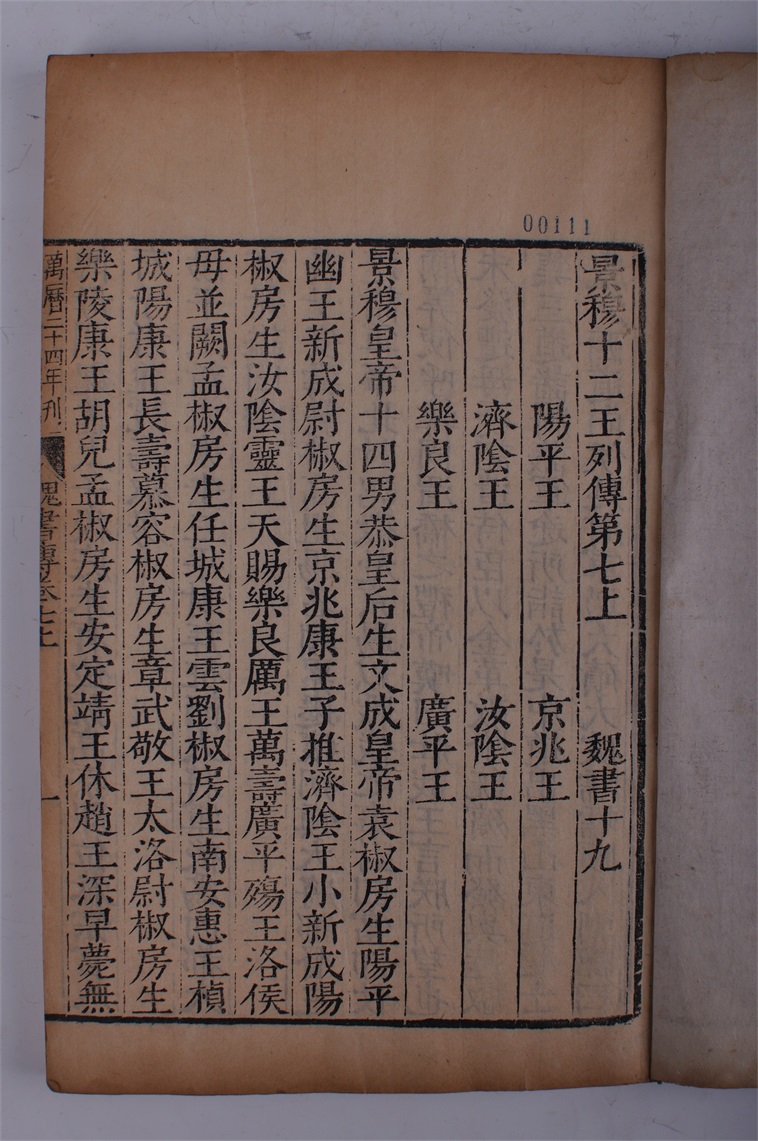 00111
景穆十二王列傳第七上 魏書十九
陽平王 京兆王
濟陰王 汝陰王
樂良王 廣平王
景穆皇帝十四男恭皇后生文成皇帝袁椒房生陽平
幽王新成尉椒房生京兆康王子推濟陰王小新成陽
椒房生汝陰靈王天賜樂良厲王萬壽廣平殤王洛侯
母並闕孟椒房生任城康王雲劉椒房生南安惠王楨
城陽康王長壽慕容椒房生章武敬王太洛尉椒房生
樂陵康王胡兒孟椒房生安定靖王休趙王深早薨無
萬曆二十四年刊 魏書傳卷七上 一